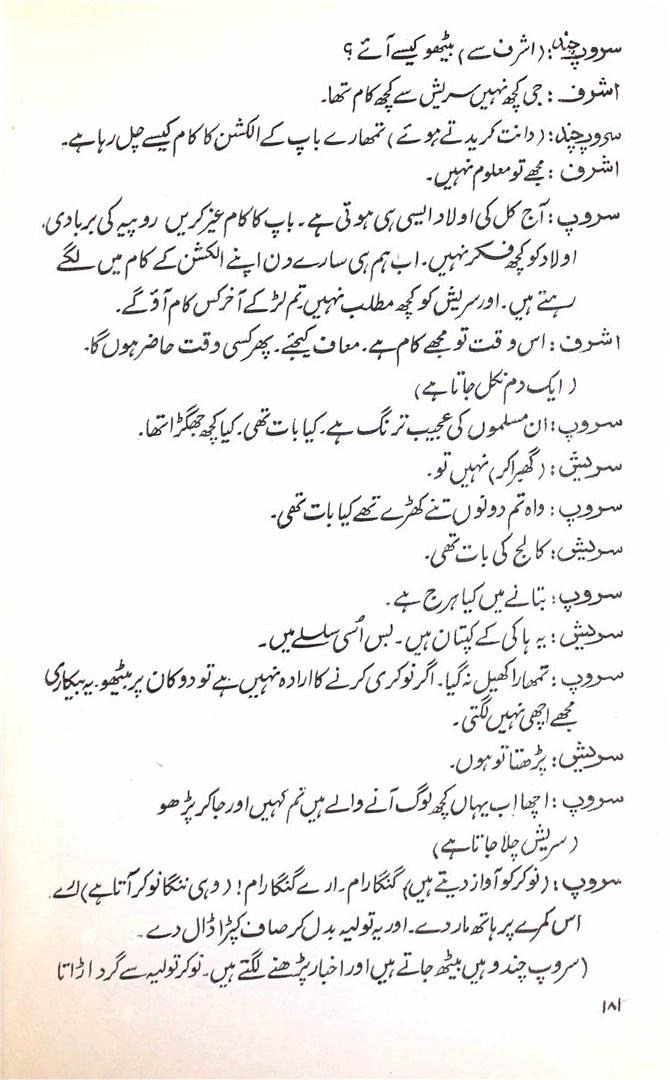 سروپ چند: (اشرف سے) بیٹھو کیسے آئے ؟
اشرف : جی کچھ نہیں سریش سے کچھ کام تھا۔
سروپ چند: (دانت کریدتے ہوئے) تمھارے باپ کے الکشن کا کام کیسے چل رہا ہے۔
اشرف : مجھے تو معلوم نہیں۔
سروپ : آج کل کی اولاد ایسی ہی ہوتی ہے۔ باپ کا کام غیر کریں روپیہ کی بربادی،
اولاد کو کچھ فکر نہیں۔ اب ہم ہی سارے دن اپنے الکشن کے کام میں لگے
رہتے ہیں۔ اور سریش کو کچھ مطلب نہیں تم لڑکے آخر کس کام آؤ گے۔
اشرف : اس وقت تو مجھے کام ہے۔ معاف کیجئے۔ پھر کسی وقت حاضر ہوں گا۔
(ایک دم نکل جاتا ہے)
سروپ : ان مسلموں کی عجیب ترنگ ہے۔ کیا بات تھی۔ کیا کچھ جھگڑا تھا۔
سریش : (گھبرا کر) نہیں تو۔
سروپ : واہ تم دونوں تنے کھڑے تھے کیا بات تھی۔
سریش : کالج کی بات تھی۔
سروپ : بتانے میں کیا ہرج ہے۔
سریش : یہ ہاکی کے کپتان ہیں۔ بس اُسی سلسلے میں۔
سروپ : تمھارا کھیل نہ گیا۔ اگر نوکری کرنے کا ارادہ نہیں ہے تو دوکان پر بیٹھو۔ یہ بیکاری
مجھے اچھی نہیں لگتی۔
سریش : پڑھتا تو ہوں۔
سروپ : اچھا اب یہاں کچھ لوگ آنے والے ہیں تم کہیں اور جا کر پڑھو
(سریش چلا جاتا ہے)
سروپ : (نوکر کو آواز دیتے ہیں) گنگا رام۔ ارے گنگا رام! (وہی ننگا نوکر آتا ہے) اے
اس کمرے پر ہاتھ مار دے۔ اور یہ تولیہ بدل کر صاف کپڑا ڈال دے۔
(سروپ چند وہیں بیٹھ جاتے ہیں اور اخبار پڑھنے لگتے ہیں۔ نوکر تولیہ سے گرد اڑاتا
۱۸۱